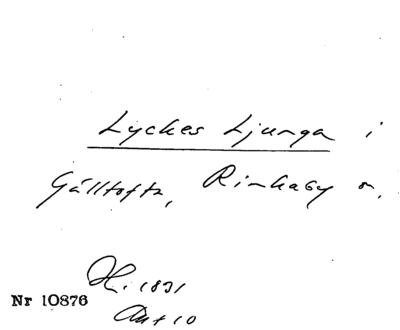 Lyckes Ljunga i
Gälltofta, Rinkaby sn,
H. 1831
Akt 10
Nr 10876